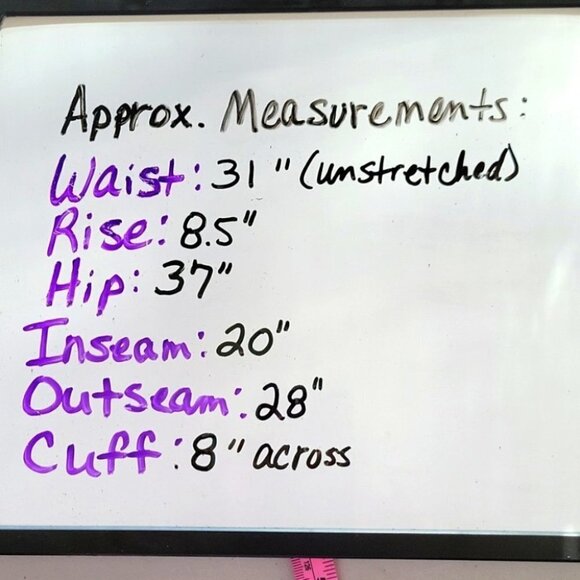 Approx. Measurements:
Waist: 31" (unstretched)
Rise: 8.5"
Hip: 37"
Inseam: 20"
Outseam: 28"
Cuff: 8" across